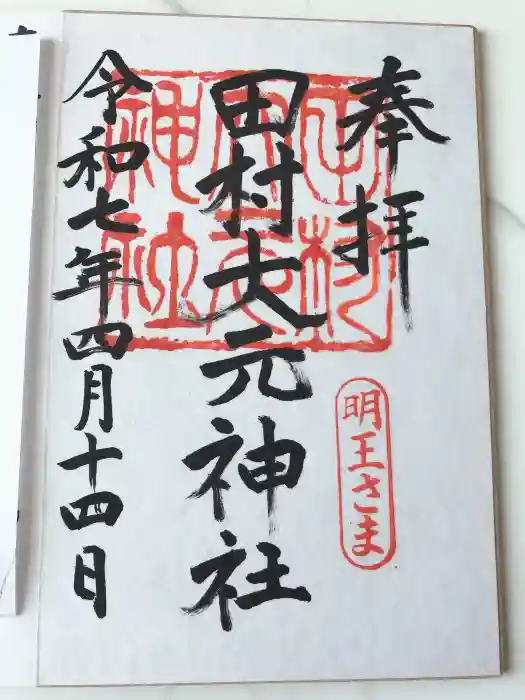 奉拝
明王さま
田村大元神社
田村大元神社
令和七年四月十四日